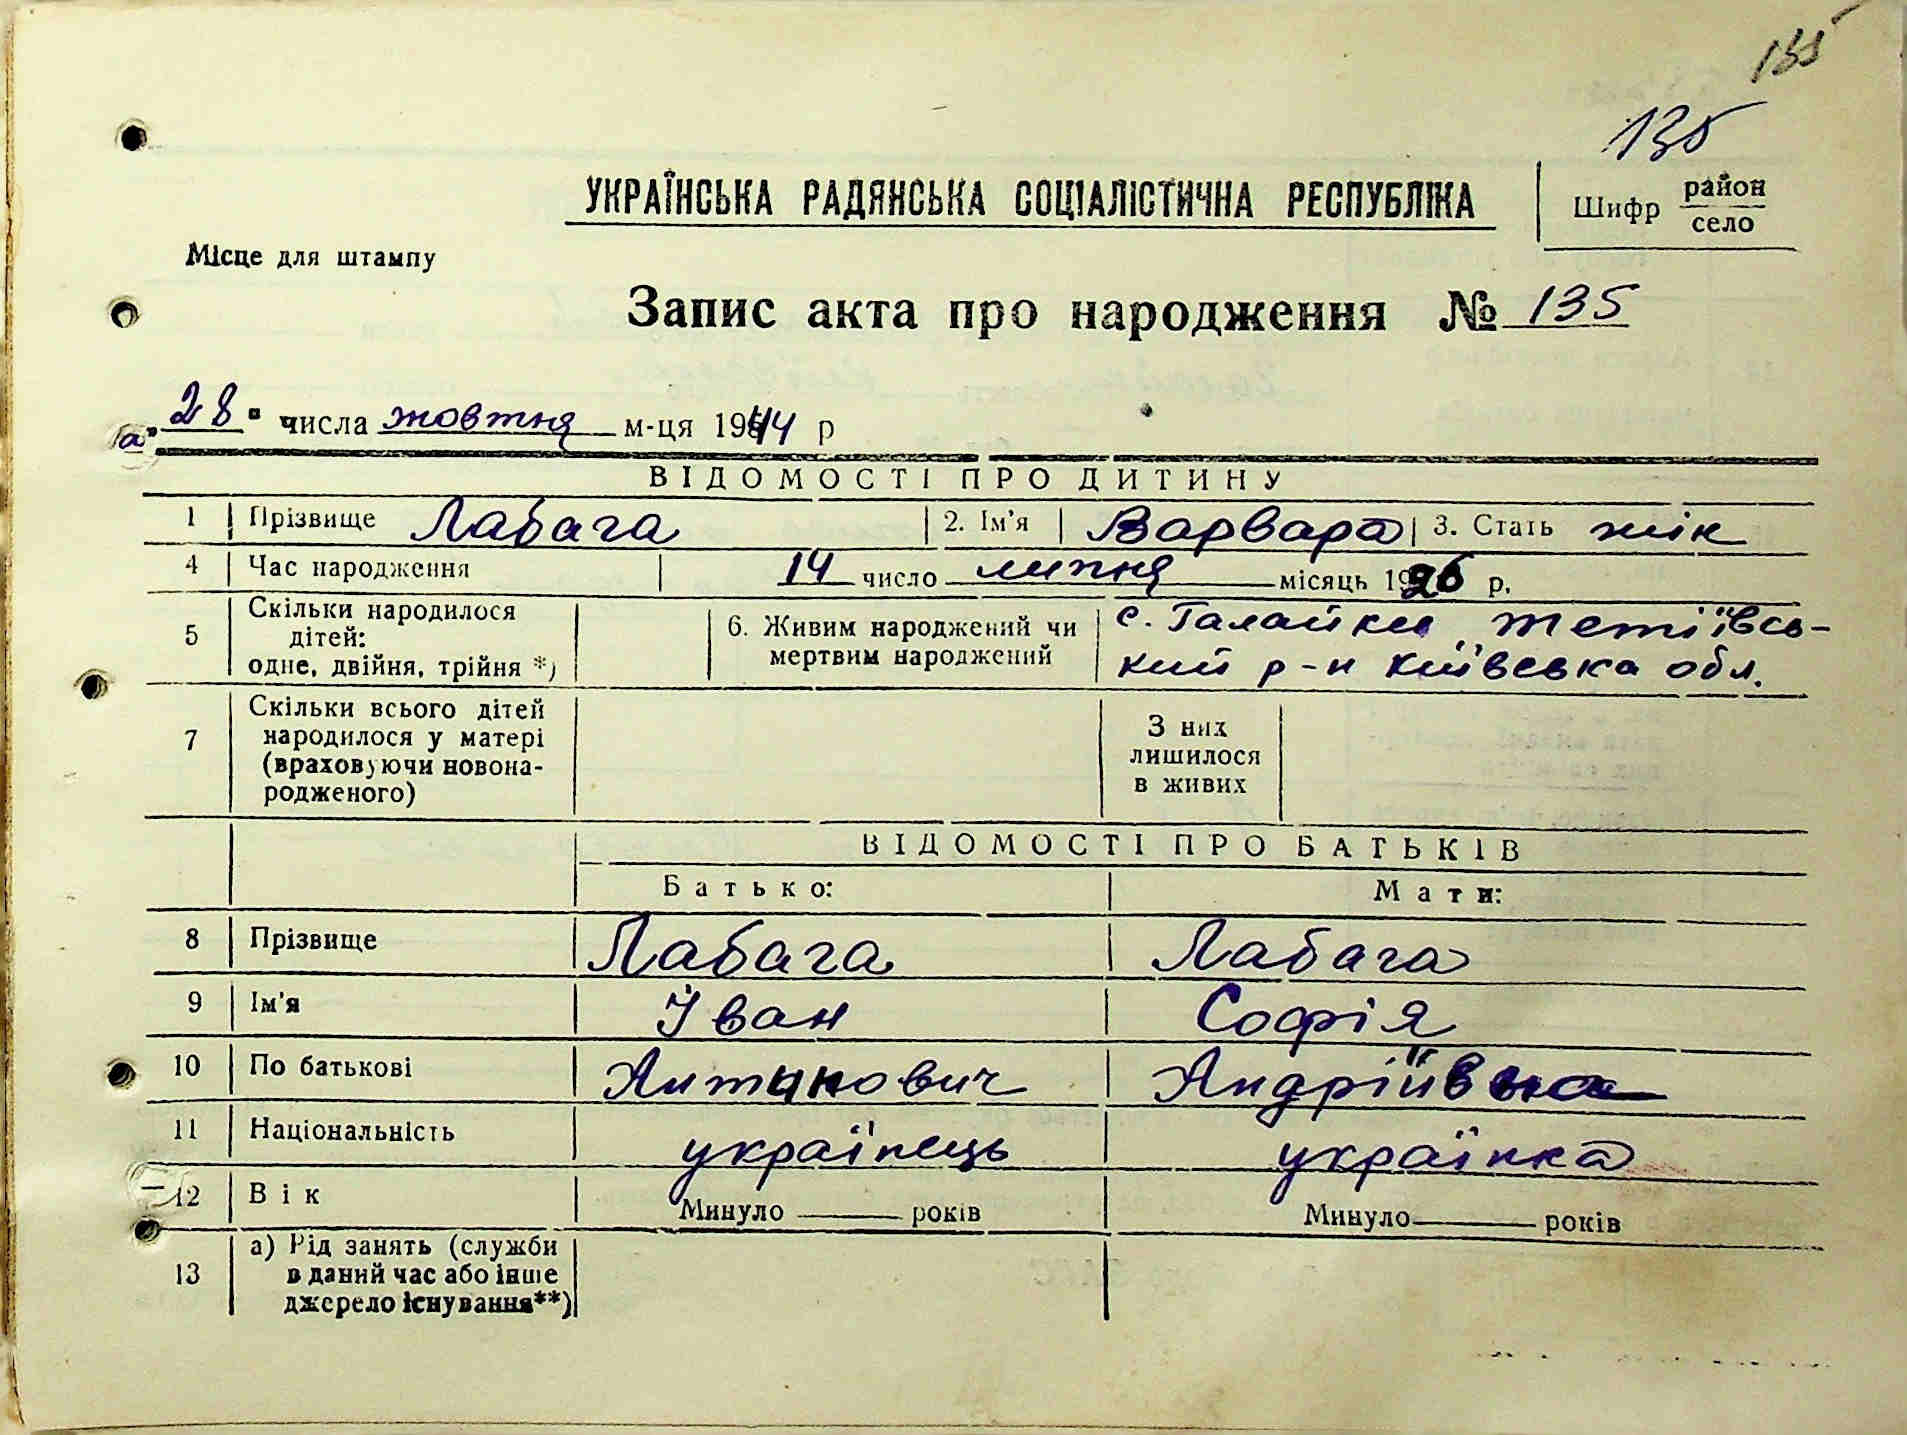 135
135
УКРАЇНСЬКА РАДЯНСЬКА СОЦІАЛІСТИЧНА РЕСПУБЛІКА
Шифр район село
Місце для штампу
Запис акта про народження № 135
"28" числа жовтня м-ця 1944 р
ВІДОМОСТІ ПРО ДИТИНУ
1 Прізвище Лабага 2. Ім'я Варвара 3. Стать жін
4 Час народження 14 число липня місяць 1926 р.
5 Скільки народилося дітей: одне, двійня, трійня *) 6. Живим народжений чи мертвим народжений с. Галайки Тетіївсь-
кий р-н Київська обл.
7 Скільки всього дітей народилося у матері (враховуючи новона-родженого) З них лишилося в живих
ВІДОМОСТІ ПРО БАТЬКІВ
Батько: Мати:
8 Прізвище Лабага Лабага
9 Ім'я Іван Софія
10 По батькові Антонович Андріївна
11 Національність українець українка
12 Вік Минуло років Минуло років
13 а) Рід занять (служби
в даний час або інше
джерело існування**)